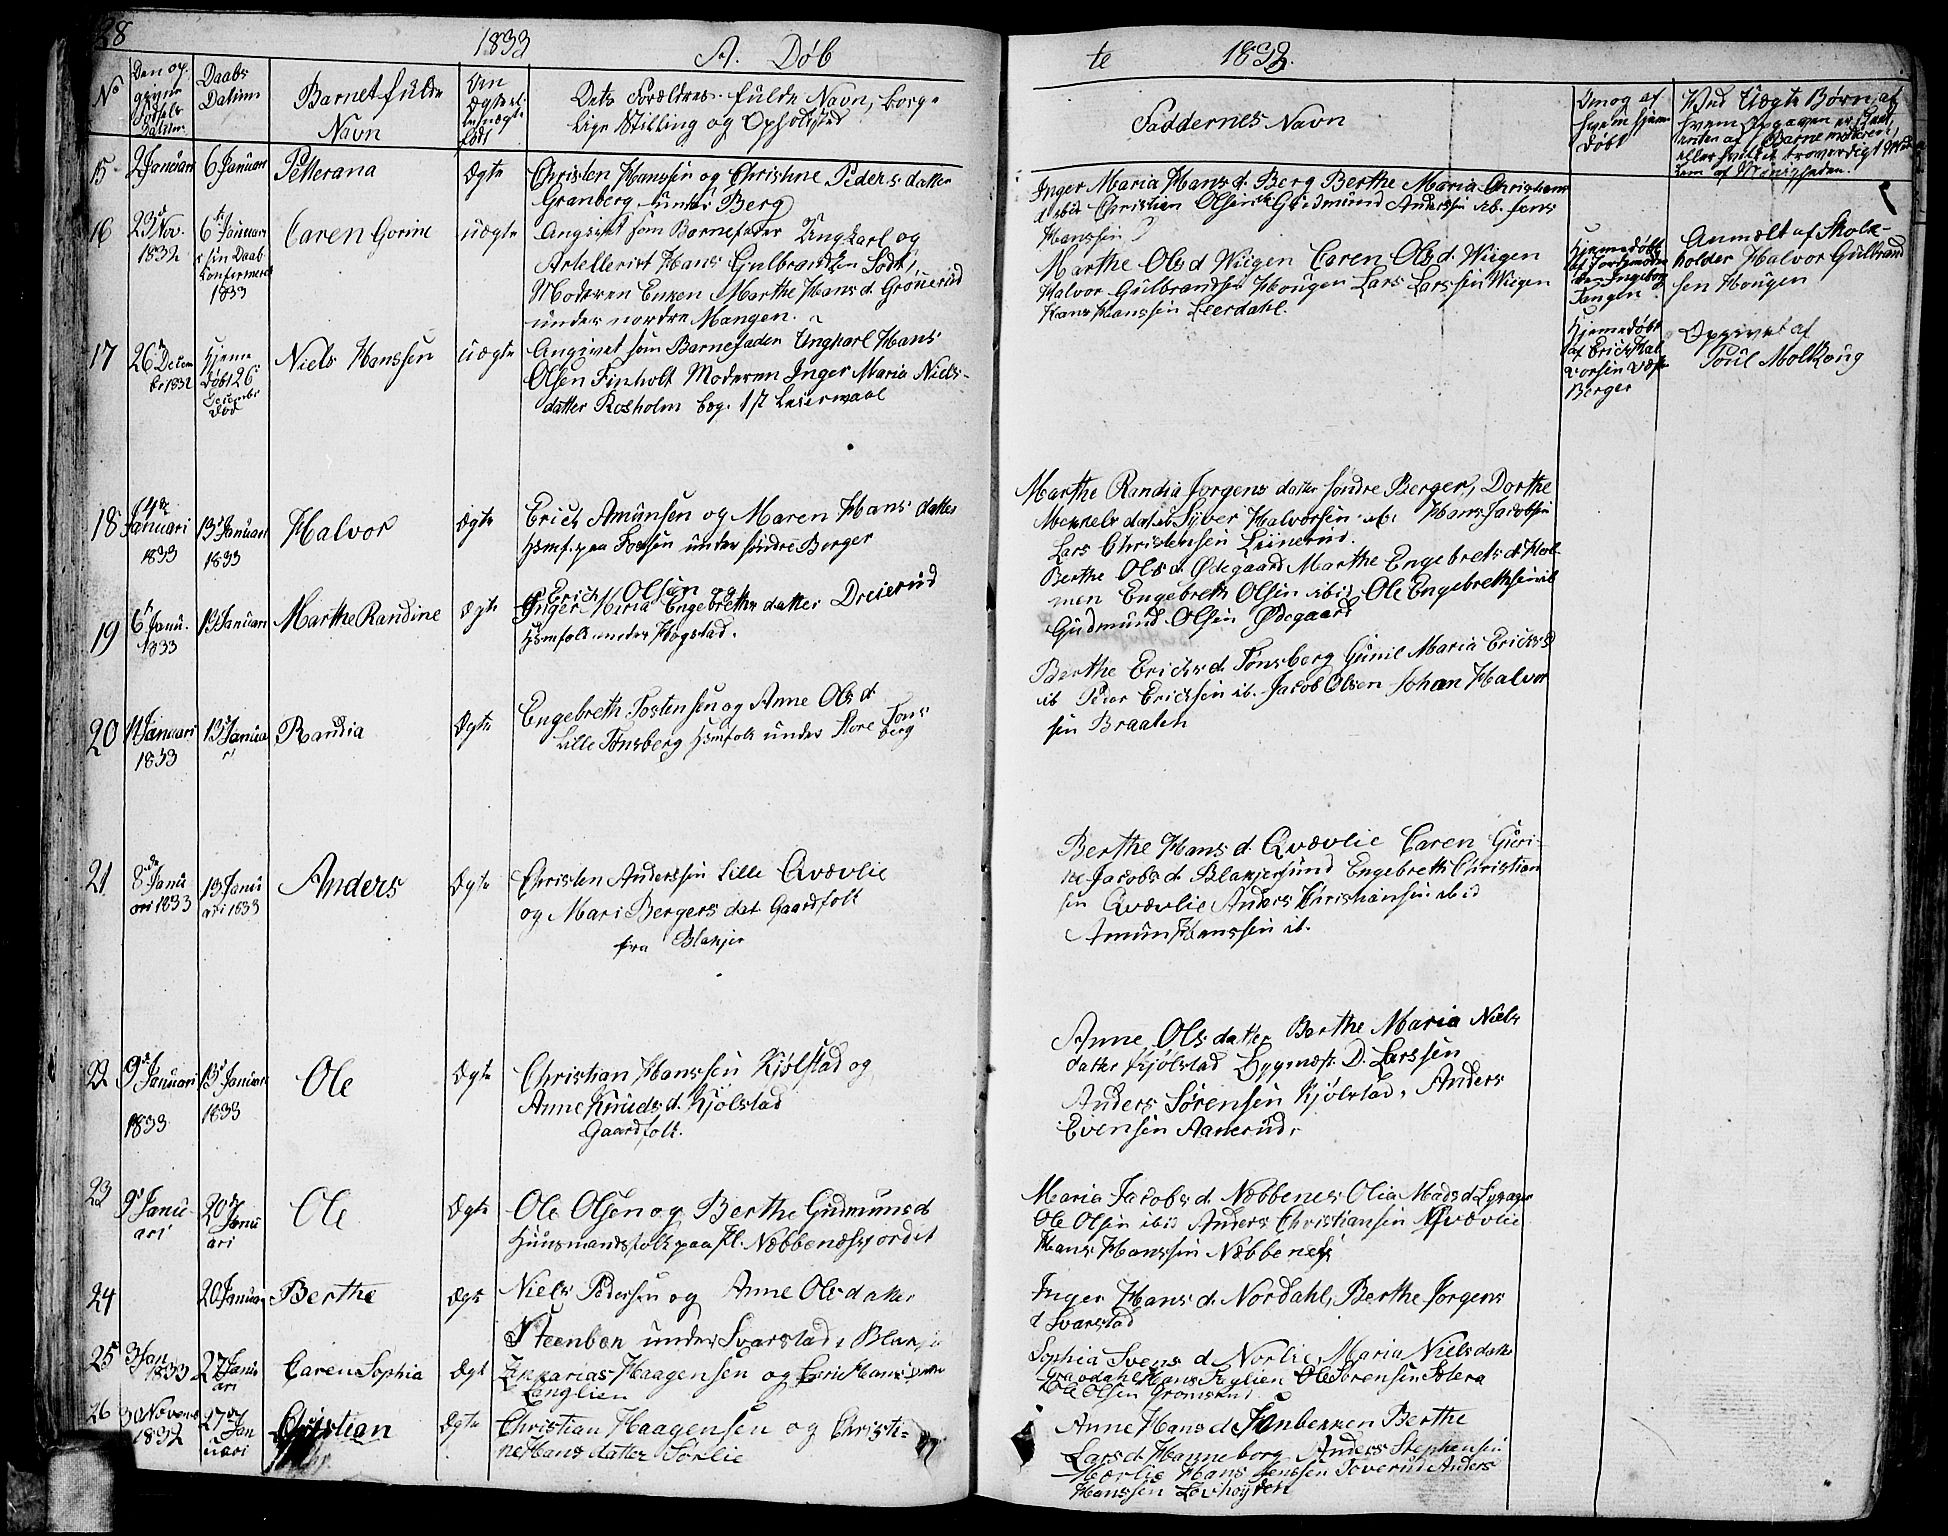 28
1833
A. Døb
te 1833.
No
Daabs
Datum
Barnets fulde
Navn
Dets Forældres fulde Navn, borge-
lige Stilling og Opholdsted
Faddernes Navn
15 2 Januari 6 Januari Petterana Ægte Christen Hanssen og Christine Peders datter
Granberg under Berg
Inger Maria Hans d. Berg Berthe Maria Christians
d ibid Christian Olsen Gudmund Anderssen ib. Jens
Hanssen
16 23d Nov. 1832 6te Januari
sin Daab
Confirmeret
1833
Caren Gorine uægte Angivet som Barnefader Ungkarl og
Artellerist Hans Gulbrandsen
Moderen Enken Marthe Hans d. Grönerud
under nordre Mangen.
Marthe Ols d Wiigen Caren Ols d. Wiigen
Halvor Gulbrandsen Hougen Lars Larssen Wiigen
Hans Hanssen Leerdahl.
Hjemmedøbt
af Jordmoder
Ingeborg
Tangen
Anmælt af Skole-
holder Halvor Gulbrand
sen Hougen
17 26 Decem
ber 1832
Hjeme
døbt 26
Decembr
død
Niels Hanssen uægte Angivet som Barnefader Ungkarl Hans
Olsen Finholt Moderen Inger Maria Niels-
datter Rosholm beg. 1st Leiermaal
Hjemedøbt
af Erich Hal
vorsen
Berger
Opgivet af
Poul Molkoug
18 Januari
1833
13 Januari
1833
Halvor Ægte Erich Amunsen og Maren Hans datter
Hsmf. paa Fossen under søndre Berger
Marthe Randia Jorgens datter søndre Berger, Dorthe
Syver Halvorsen ib. Hans Jacobsen
Lars Christensen Liinerud.
19 6t Janu.
1833
13 Januari Marthe Randine Ægte Erich Olsen og
Inger Maria Engebreths datter Dreierud
Hsmfolk under Hogstad.
Berthe Ols d. Ødegaard Marthe Engebrets d. Hol
men Engebreth Olsen ibid. Ole Engebrethsen ib
Gudmund Olsen Ødegaard
20 11 Januari
1833
13 Janua
ri
Randia Ægte Engebreth Tostensen og Anne Ols d
Lille Tønsberg Hsmfolk under Store Tøns
berg
Berthe Erichs d. Tønsberg Gunil Maria Erichs d
ib Peder Erichsen ib. Jacob Olsen Johan Halvor
sen Braaten
21 8de Janu
ari 1833
13 Janu
ari 1833
Anders Ægte Christen Anderssen Lille Qvævlie
og Mari Bergers dat Gaardfolk
fra Blakjer
Berthe Hans d. Qvævlie Caren Guri-
ne Jacobs d. Blakjersund Engebreth Christian
sen Qvævlie Anders Christiansen ibid
Amun Hanssen ib.
22 9d Januari
1833
13 Januar
1833
Ole Ægte Christian Hanssen Kiølstad og
Anne Knuds d. Kjølstad
Gaardfolk.
Anne Ols datter Berthe Maria Niels
datter Kjølstad Bygmest. D. Larssen
Anders Sørensen Kjølstad, Anders
Evensen Aanerud.
23 9d Janu-
ari
20d Janu
ari
Ole Ægte Ole Olsen og Berthe Gudmunsd
Huusmandsfolk paa Pl. Næbbenæsfjordet
Maria Jacobs d. Næbbenes Olia Mads d
Ole Olsen ibid Anders Christiansen Qvævlie
Hans Hanssen Næbbenes
24 20 Januar Berthe Ægt Niels Pedersen og Anne Ols datter
Steenbon under Svarstad, Blakje
Inger Hans d. Nordahl, Berthe Jorgens
d Svarstad
25 3 Jan
1833
27 Janu
ari
Caren Sophia Ægt Zacharias Haagensen og
Langlien
Sophia Svens d Norlie, Maria Niels datter
Ole Sörensen
Ole Olsen
26 30 Novem
1832
27 Jan
uari
Christian Ægte Christian Haagensen og Christi-
ne Hans datter Sorlie
Anne Hans d. Berthe
Lars d. Hanneborg Anders Stephensen
Mærlie Hans Jenssen Toverud Anders
Hanssen